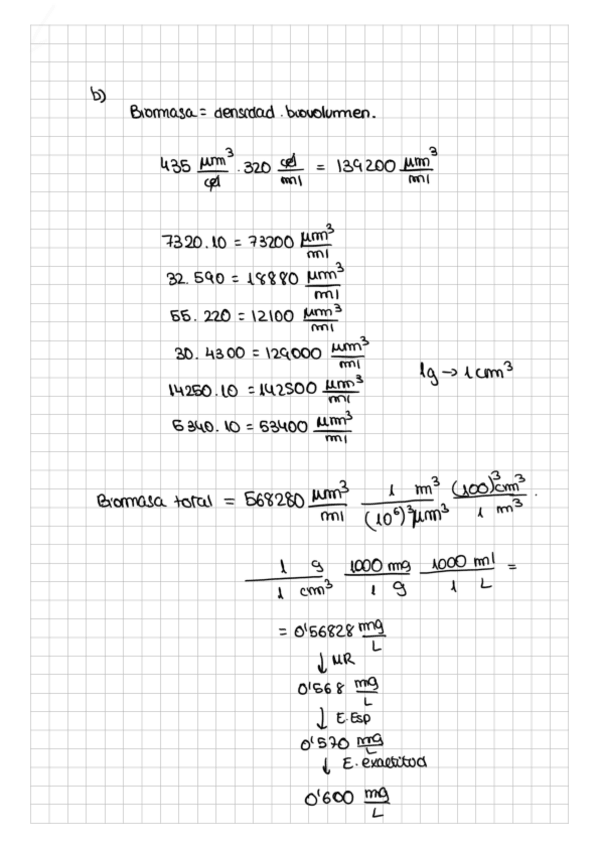 b)
Biomasa = densidad . biovolumen.
435 µm³/cel . 320 cel/ml = 139200 µm³/ml
7320.10 = 73200 µm³/ml
32. 590 = 18880 µm³/ml
55. 220 = 12100 µm³/ml
30. 4300 = 129000 µm³/ml
1g → 1 cm³
14250.10 = 142500 µm³/ml
5340.10 = 53400 µm³/ml
Biomasa total = 568280 µm³/ml 1 m³/(10⁶)³µm³ (100)³cm³/1 m³ .
1 g/1 cm³ 1000 mg/1 g 1000 ml/1 L =
= 0'56828 mg/L
↓ MR
0'568 mg/L
↓ E.Esp
0'570 mg/L
↓ E. exactitud
0'600 mg/L